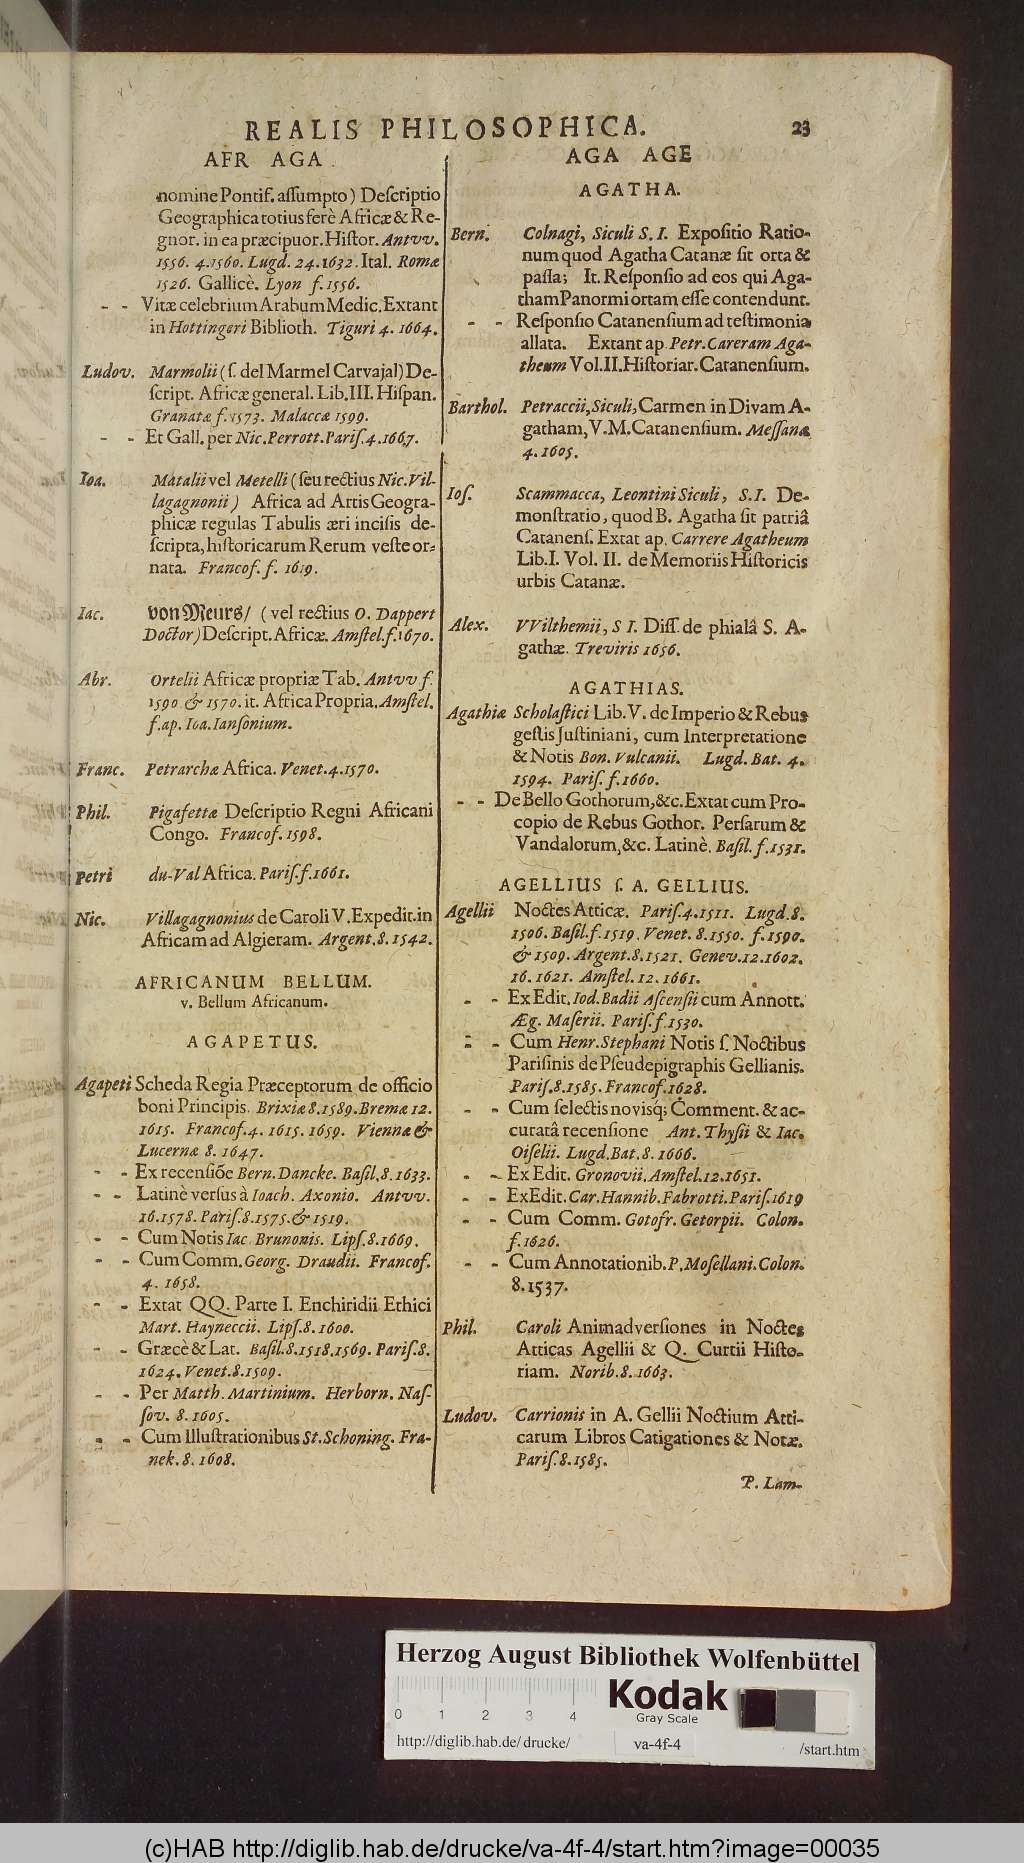 REALIS PHILOSOPHICA.
23
AFR AGA.
nomine Pontif. aſſumpto) Deſcriptio
Geographica totius ferè Africæ & Re-
gnor. in ea præcipuor. Hiſtor. Antvv.
1556. 4. 1560. Lugd. 24. 1632. Ital. Romæ
1526. Gallicè. Lyon f. 1556.
- - Vitæ celebrium Arabum Medic. Extant
in Hottingeri Biblioth. Tiguri 4. 1664.
Ludov. Marmolii (ſ. del Marmel Carvajal) De-
ſcript. Africæ general. Lib. III. Hiſpan.
Granatæ f. 1573. Malaccæ 1599.
- - Et Gall. per Nic. Perrott. Pariſ. 4. 1667.
Ioa. Matalii vel Metelli (ſeu rectius Nic. Vil-
lagagnonii) Africa ad Artis Geogra-
phicæ regulas Tabulis æri inciſis de-
ſcripta, hiſtoricarum Rerum veſte or-
nata. Francof. f. 1619.
Iac. von Meurs/ (vel rectius O. Dappert
Doctor) Deſcript. Africæ. Amſtel. f. 1670.
Abr. Ortelii Africæ propriæ Tab. Antvv f.
1590 & 1570. it. Africa Propria. Amſtel.
f. ap. Ioa. Ianſonium.
Franc. Petrarchæ Africa. Venet. 4. 1570.
Phil. Pigafettæ Deſcriptio Regni Africani
Congo. Francof. 1598.
Petri du-Val Africa. Pariſ. f. 1661.
Nic. Villagagnonius de Caroli V. Expedit. in
Africam ad Algieram. Argent. 8. 1542.
AFRICANUM BELLUM.
v. Bellum Africanum.
AGAPETUS.
Agapeti Scheda Regia Præceptorum de officio
boni Principis. Brixiæ 8. 1589. Bremæ 12.
1615. Francof. 4. 1615. 1659. Viennæ &
Lucernæ 8. 1647.
- - Ex recenſiõe Bern. Dancke. Baſil. 8. 1633.
- - Latinè verſus à Ioach. Axonio. Antvv.
16. 1578. Pariſ. 8. 1575. & 1519.
- - Cum Notis Iac. Brunonis. Lipſ. 8. 1669.
- - Cum Comm. Georg. Draudii. Francof.
4. 1658.
- - Extat QQ. Parte I. Enchiridii Ethici
Mart. Hayneccii. Lipſ. 8. 1600.
- - Græcè & Lat. Baſil. 8. 1518. 1569. Pariſ. 8.
1624. Venet. 8. 1509.
- - Per Matth. Martinium. Herborn. Naſ-
ſov. 8. 1605.
- - Cum Illuſtrationibus St. Schoning. Fra-
nek. 8. 1608.
AGA AGE
AGATHA.
Bern. Colnagi, Siculi S. I. Expoſitio Ratio-
num quod Agatha Catanæ ſit orta &
paſſa; It. Reſponſio ad eos qui Aga-
tham Panormi ortam eſſe contendunt.
- - Reſponſio Catanenſium ad teſtimonia
allata. Extant ap. Petr. Careram Aga-
theum Vol. II. Hiſtoriar. Catanenſium.
Barthol. Petraccii, Siculi, Carmen in Divam A-
gatham, V. M. Catanenſium. Meſſanæ
4. 1605.
Ioſ. Scammacca, Leontini Siculi, S. I. De-
monſtratio, quod B. Agatha ſit patriâ
Catanenſ. Extat ap. Carrere Agatheum
Lib. I. Vol. II. de Memoriis Hiſtoricis
urbis Catanæ.
Alex. VVilthemii, S I. Diſſ. de phialâ S. A-
gathæ. Treviris 1656.
AGATHIAS.
Agathiæ Scholaſtici Lib. V. de Imperio & Rebus
geſtis Juſtiniani, cum Interpretatione
& Notis Bon. Vulcanii. Lugd. Bat. 4.
1594. Pariſ. f. 1660.
- - De Bello Gothorum, &c. Extat cum Pro-
copio de Rebus Gothor. Perſarum &
Vandalorum, &c. Latinè. Baſil. f. 1531.
AGELLIUS ſ. A. GELLIUS.
Agellii Noctes Atticæ. Pariſ. 4. 1511. Lugd. 8.
1506. Baſil. f. 1519. Venet. 8. 1550. f. 1590.
& 1509. Argent. 8. 1521. Genev. 12. 1602.
16. 1621. Amſtel. 12. 1661.
- - Ex Edit. Iod. Badii Aſcenſii cum Annott.
Æg. Maſerii. Pariſ. f. 1530.
- - Cum Henr. Stephani Notis ſ. Noctibus
Pariſinis de Pſeudepigraphis Gellianis.
Pariſ. 8. 1585. Francof. 1628.
- - Cum ſelectis noviſq; Comment. & ac-
curatâ recenſione Ant. Thyſii & Iac.
Oiſelii. Lugd. Bat. 8. 1666.
- - Ex Edit. Gronovii, Amſtel. 12. 1651.
- - Ex Edit. Car. Hannib. Fabrotti. Pariſ. 1619
- - Cum Comm. Gotofr. Getorpii. Colon.
f. 1626.
- - Cum Annotationib. P. Moſellani. Colon.
8. 1537.
Phil. Caroli Animadverſiones in Noctes
Atticas Agellii & Q. Curtii Hiſto-
riam. Norib. 8. 1663.
Ludov. Carrionis in A. Gellii Noctium Atti-
carum Libros Catigationes & Notæ.
Pariſ. 8. 1585.
P. Lam-
Herzog August Bibliothek Wolfenbüttel
Kodak
Gray Scale
0 1 2 3 4
http://diglib.hab.de/drucke/ va-4f-4 /start.htm
(c)HAB http://diglib.hab.de/drucke/va-4f-4/start.htm?image=00035